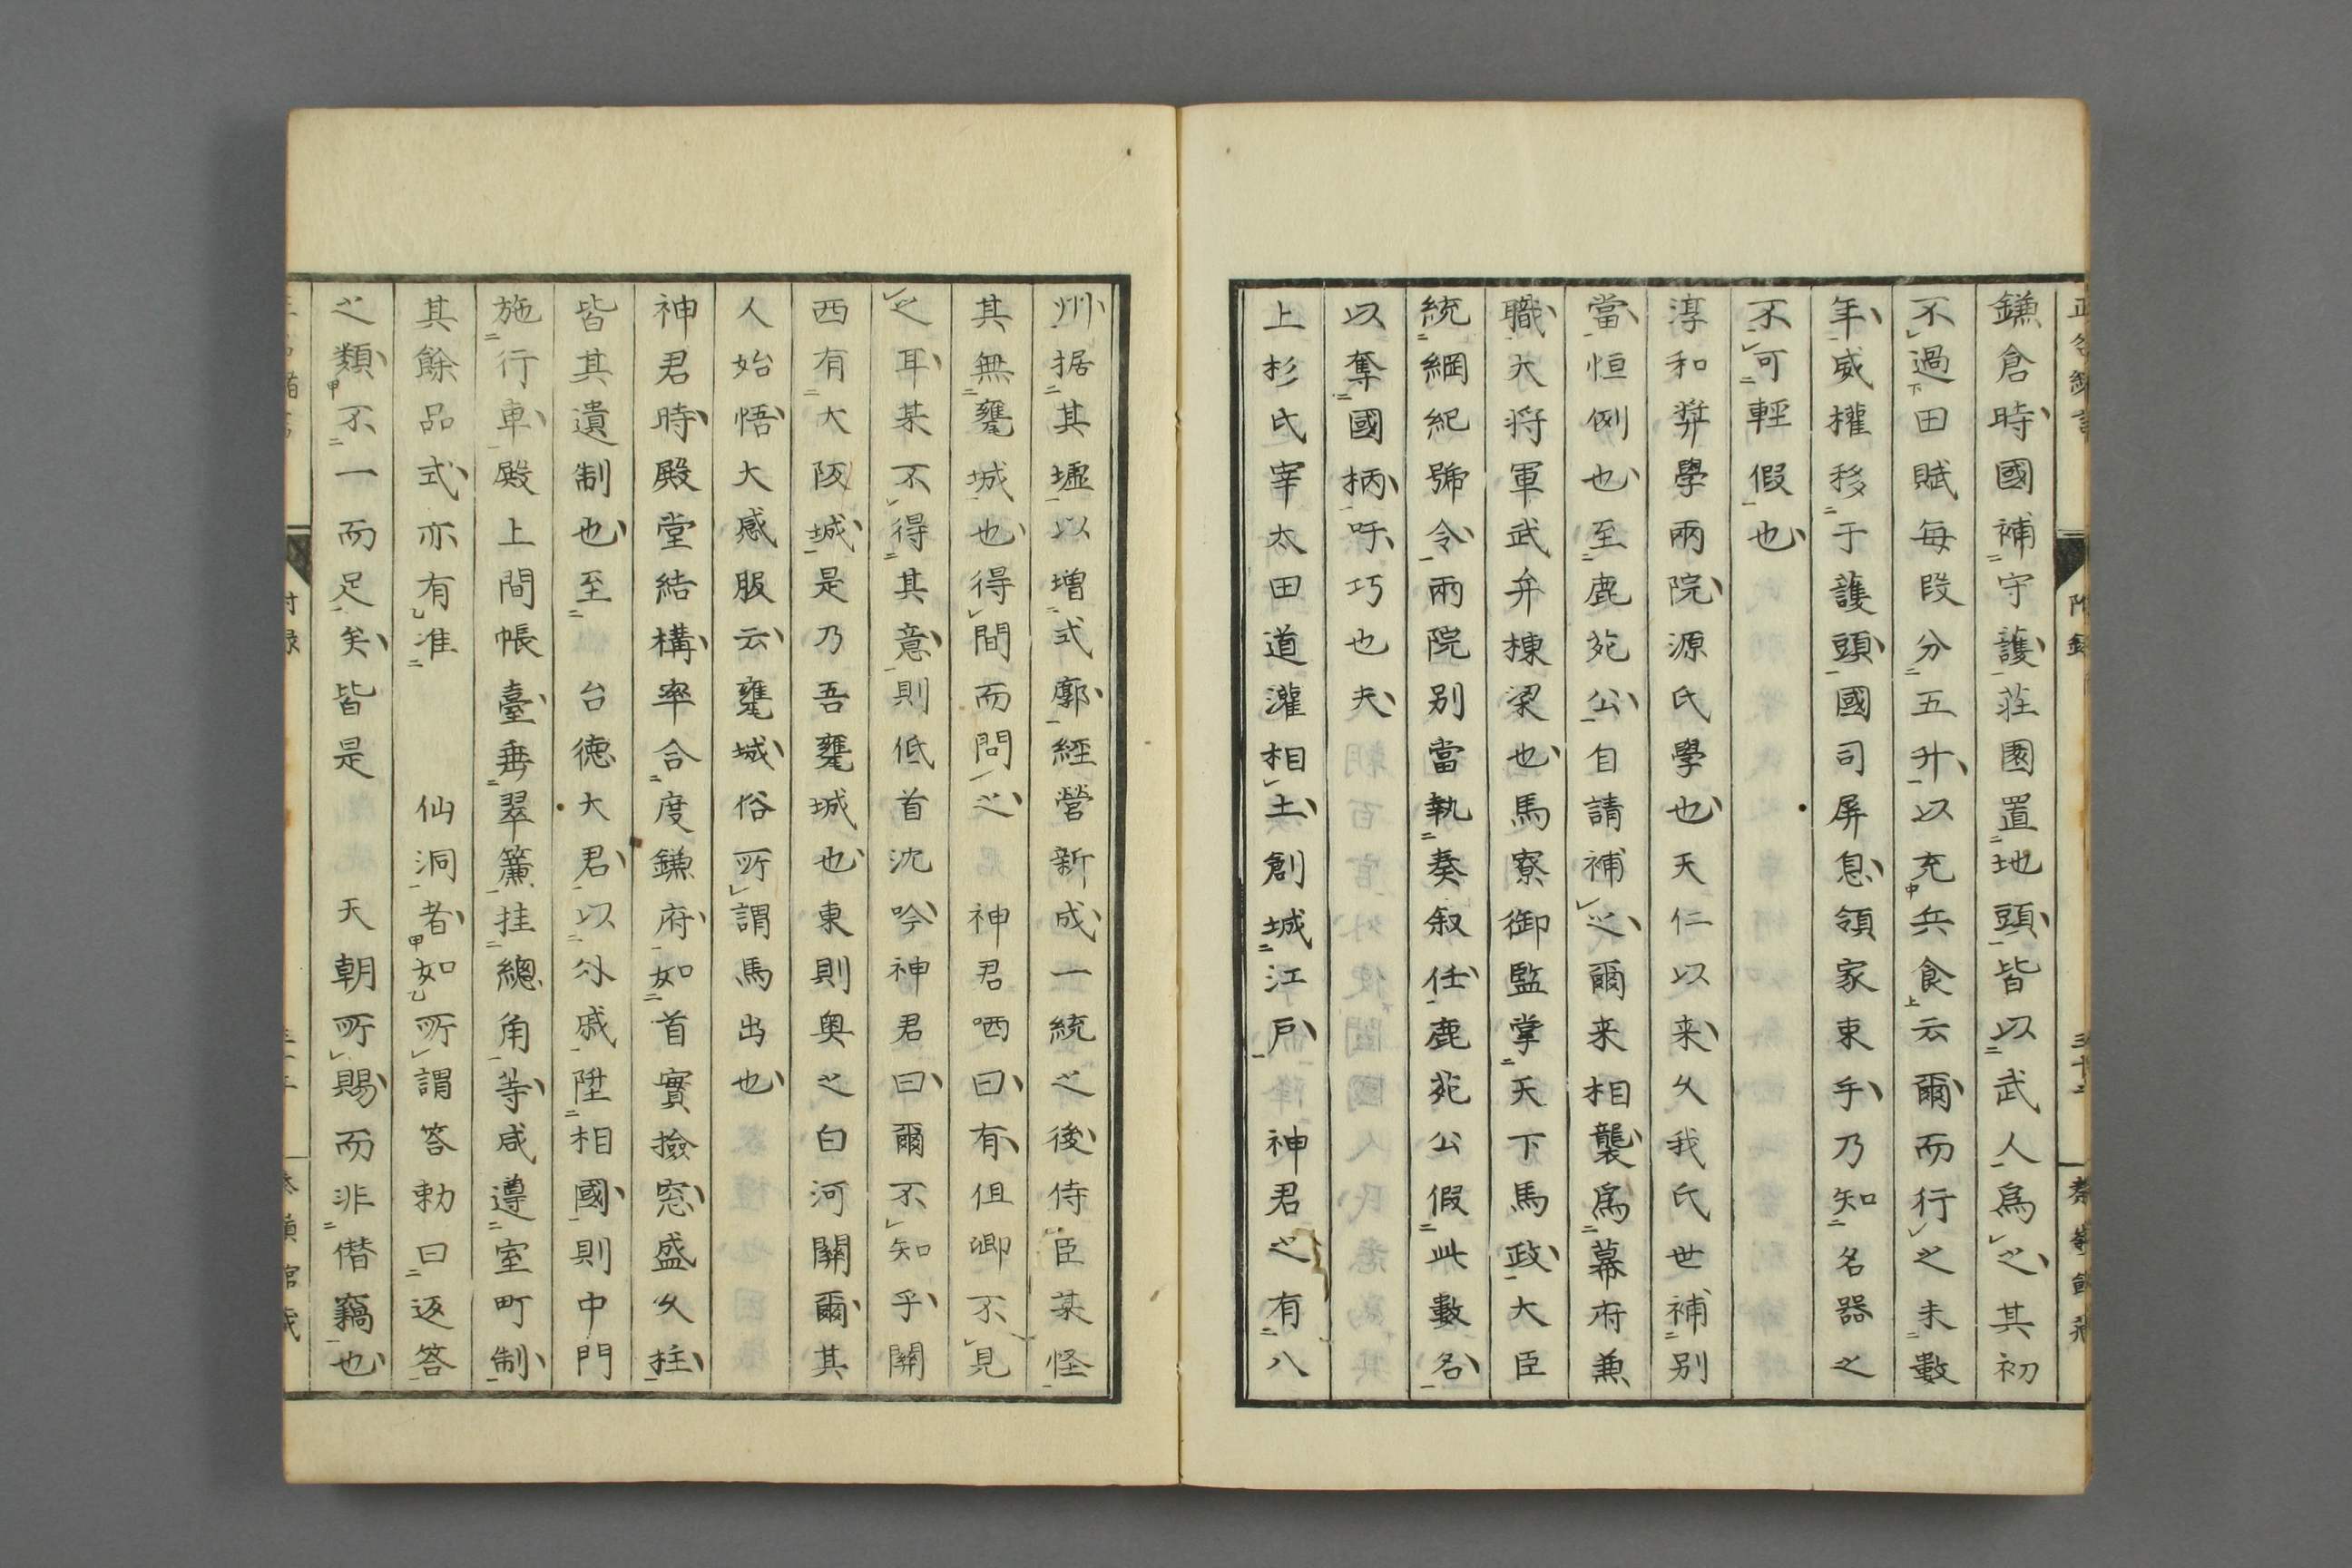 鎌倉時國補守護荘園置地頭皆以武人爲之其初
不過田賦每段分五升以充兵食云爾而行之未數
年威權移于護頭國司屏息領家束手乃知名器之
不可輕假也
淳和弉學兩院源氏學也天仁以来久我氏世補别
當恒例也至鹿苑公自請補之爾来相襲爲幕府兼
職大将軍武弁棟梁也馬寮御監掌天下馬政大臣
統綱紀號令兩院别當執奏叙任鹿苑公假此數名
以奪國柄吁巧也夫
上杉氏宰太田道灌相土創城江戶神君之有八
州据其墟以増式廓經營新成一統之後侍臣某怪
其無甕城也得間而問之神君哂曰有但卿不見
之耳某不得其意則低首沈吟神君曰爾不知乎關
西有大阪城是乃吾甕城也東則奥之白河關爾其
人始悟大感服云甕城俗所謂馬出也
神君時殿堂結構率合度鎌府如首實撿窓盛久柱
皆其遺制也至台徳大君以外戚陞相國則中門
施行車殿上間帳臺垂翠簾挂總角等咸遵室町制
其餘品式亦有准仙洞者如所謂答勅曰返答
之類不一而足矣皆是天朝所賜而非僭竊也
附録